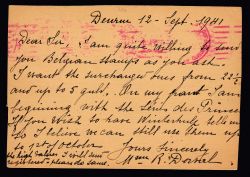 Deurne 12 - Sept. 1981
Dear Sir, I am quite willing to send
you Belgian stamps as you ask.
I want the surcharged ones from 22½
and up to 5 guld. On my part I am
beginning with the Series des Princes
If you wish to have Winterhulp tell us
so I believe we can still use them up
to 1st of October
the high values I will send
registered - please do same.
Yours Sincerely
Mme R.